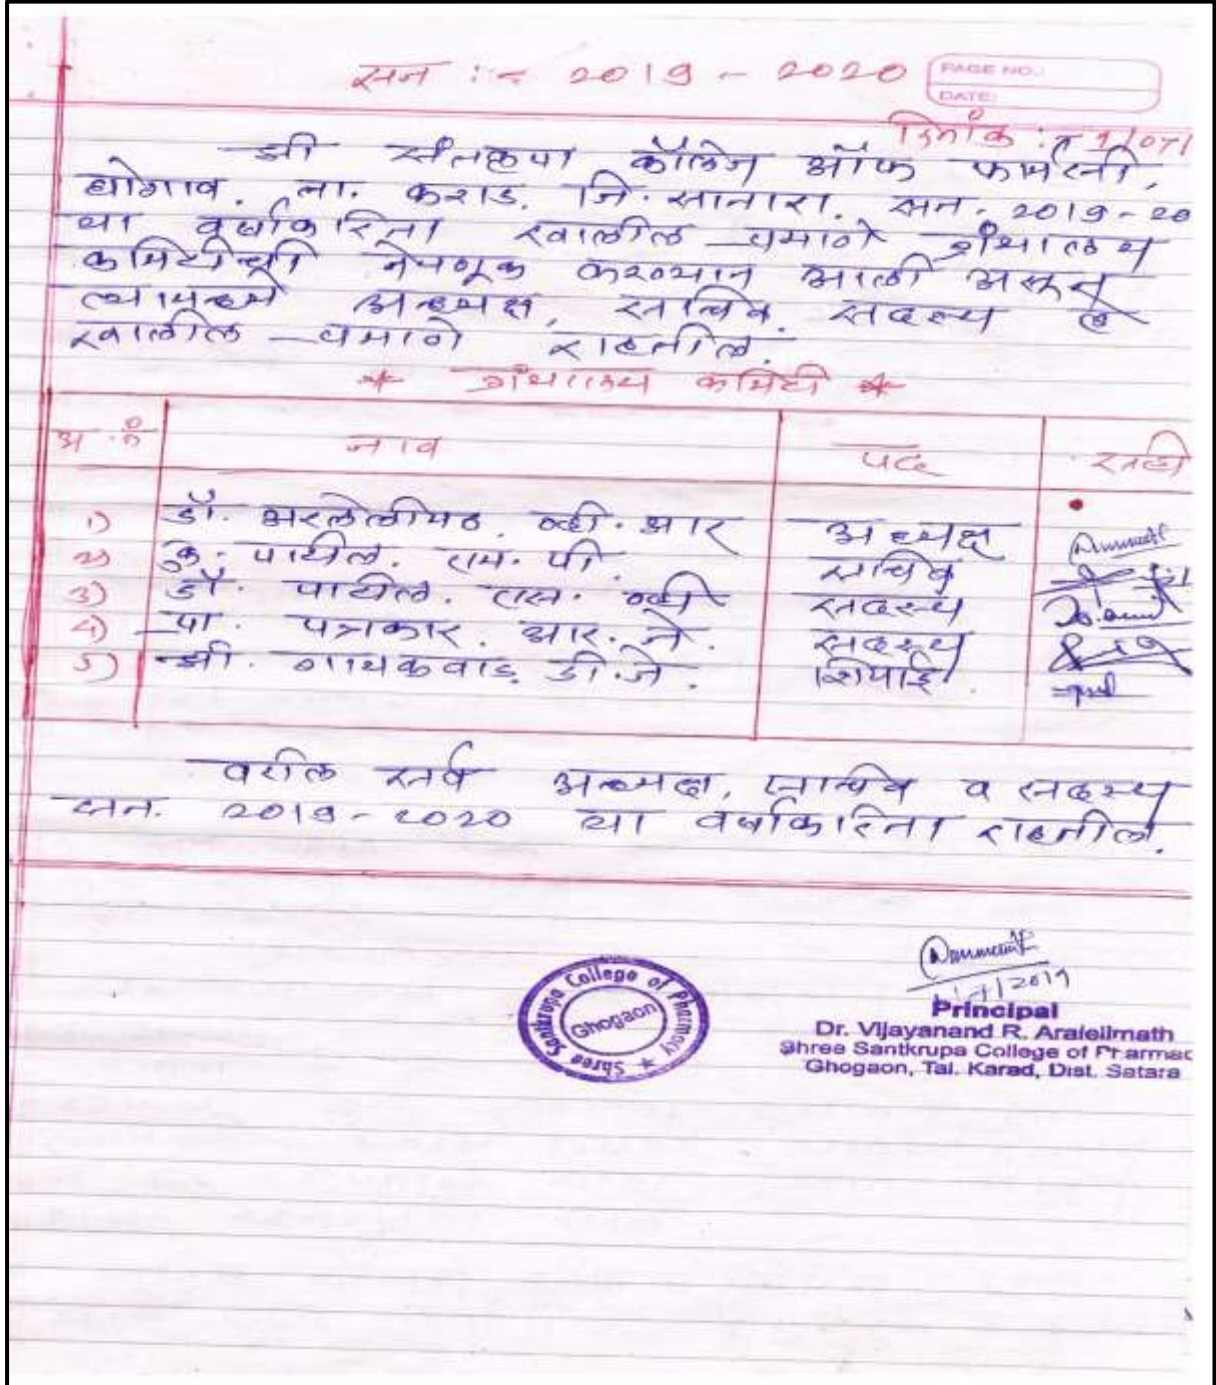 सन :- 2019 - 2020
PAGE NO.:
DATE:
दिनांक : 1/07/
श्री संतकृपा कॉलेज ऑफ फार्मसी,
घोगाव. ता. कराड. जि. सातारा. सन. 2019-20
या वर्षाकरिता खालील प्रमाणे ग्रंथालय
कमिटीची नेमणूक करण्यात आली असून
त्यामध्ये अध्यक्ष, सचिव, सदस्य हे
खालील प्रमाणे राहतील.
* ग्रंथालय कमिटी *
अ.क्रं नाव पद सही
1) डॉ. अरलेलीमठ. व्ही. आर अध्यक्ष
2) कु. पाटील. एम. पी. सचिव
3) डॉ. पाटील. एस. व्ही सदस्य
4) प्रा. पत्रकार. आर. जे. सदस्य
5) श्री. गायकवाड. डी. जे. शिपाई
वरील सर्व अध्यक्ष, सचिव व सदस्य
सन. 2019-2020 या वर्षाकरिता राहतील.
Shree Santkrupa College of Pharmacy
Ghogaon
Principal
Dr. Vijayanand R. Aralelimath
Shree Santkrupa College of Pharmac
Ghogaon, Tal. Karad, Dist. Satara